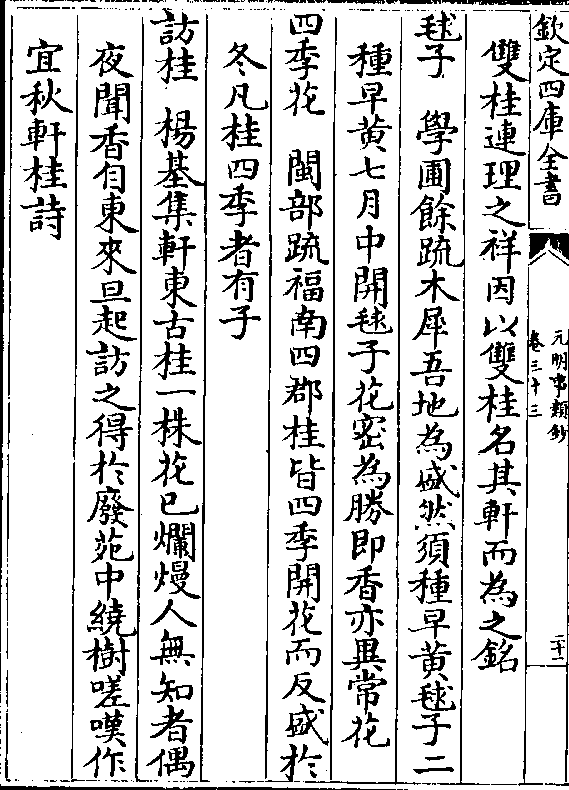 欽定四庫全書
元明事類鈔
卷三十三
二十二
雙桂連理之祥因以雙桂名其軒而為之銘
毬子 學圃餘疏木犀吾地為盛然須種早黄毬子二
種早黄七月中開毬子花密為勝即香亦異常花
四季花 閩部疏福南四郡桂皆四季開花而反盛於
冬凡桂四季者有子
訪桂 楊基集軒東古桂一株花已爛熳人無知者偶
夜聞香自東來旦起訪之得於廢苑中繞樹嗟嘆作
宜秋軒桂詩